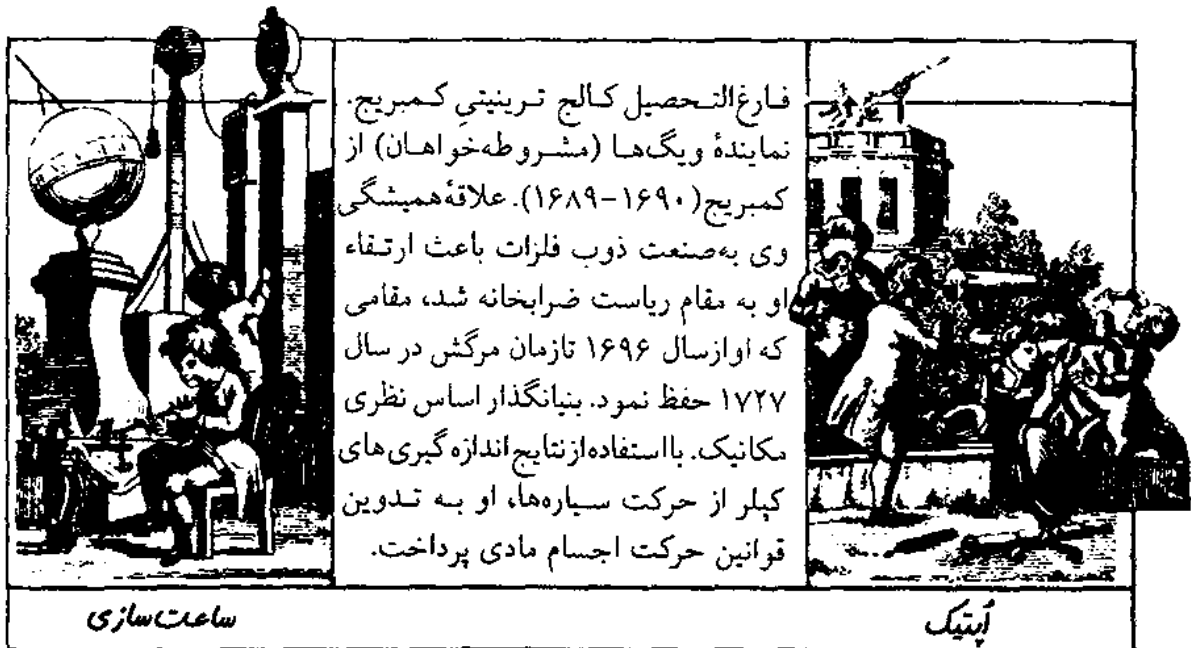 فارغ‌التحصیل کالج ترینیتیِ کمبریج.
نمایندهٔ ویگ‌ها (مشروطه‌خواهان) از
کمبریج (۱۶۹۰-۱۶۸۹). علاقهٔ همیشگی
وی به‌صنعت ذوب فلزات باعث ارتقاء
او به مقام ریاست ضرابخانه شد، مقامی
که او ازسال ۱۶۹۶ تازمان مرگش در سال
۱۷۲۷ حفظ نمود. بنیانگذار اساس نظری
مکانیک. بااستفاده ازنتایج اندازه گیری های
کپلر از حرکت سیاره‌ها، او به تدوین
قوانین حرکت اجسام مادی پرداخت.
اُپتیک
ساعت سازی